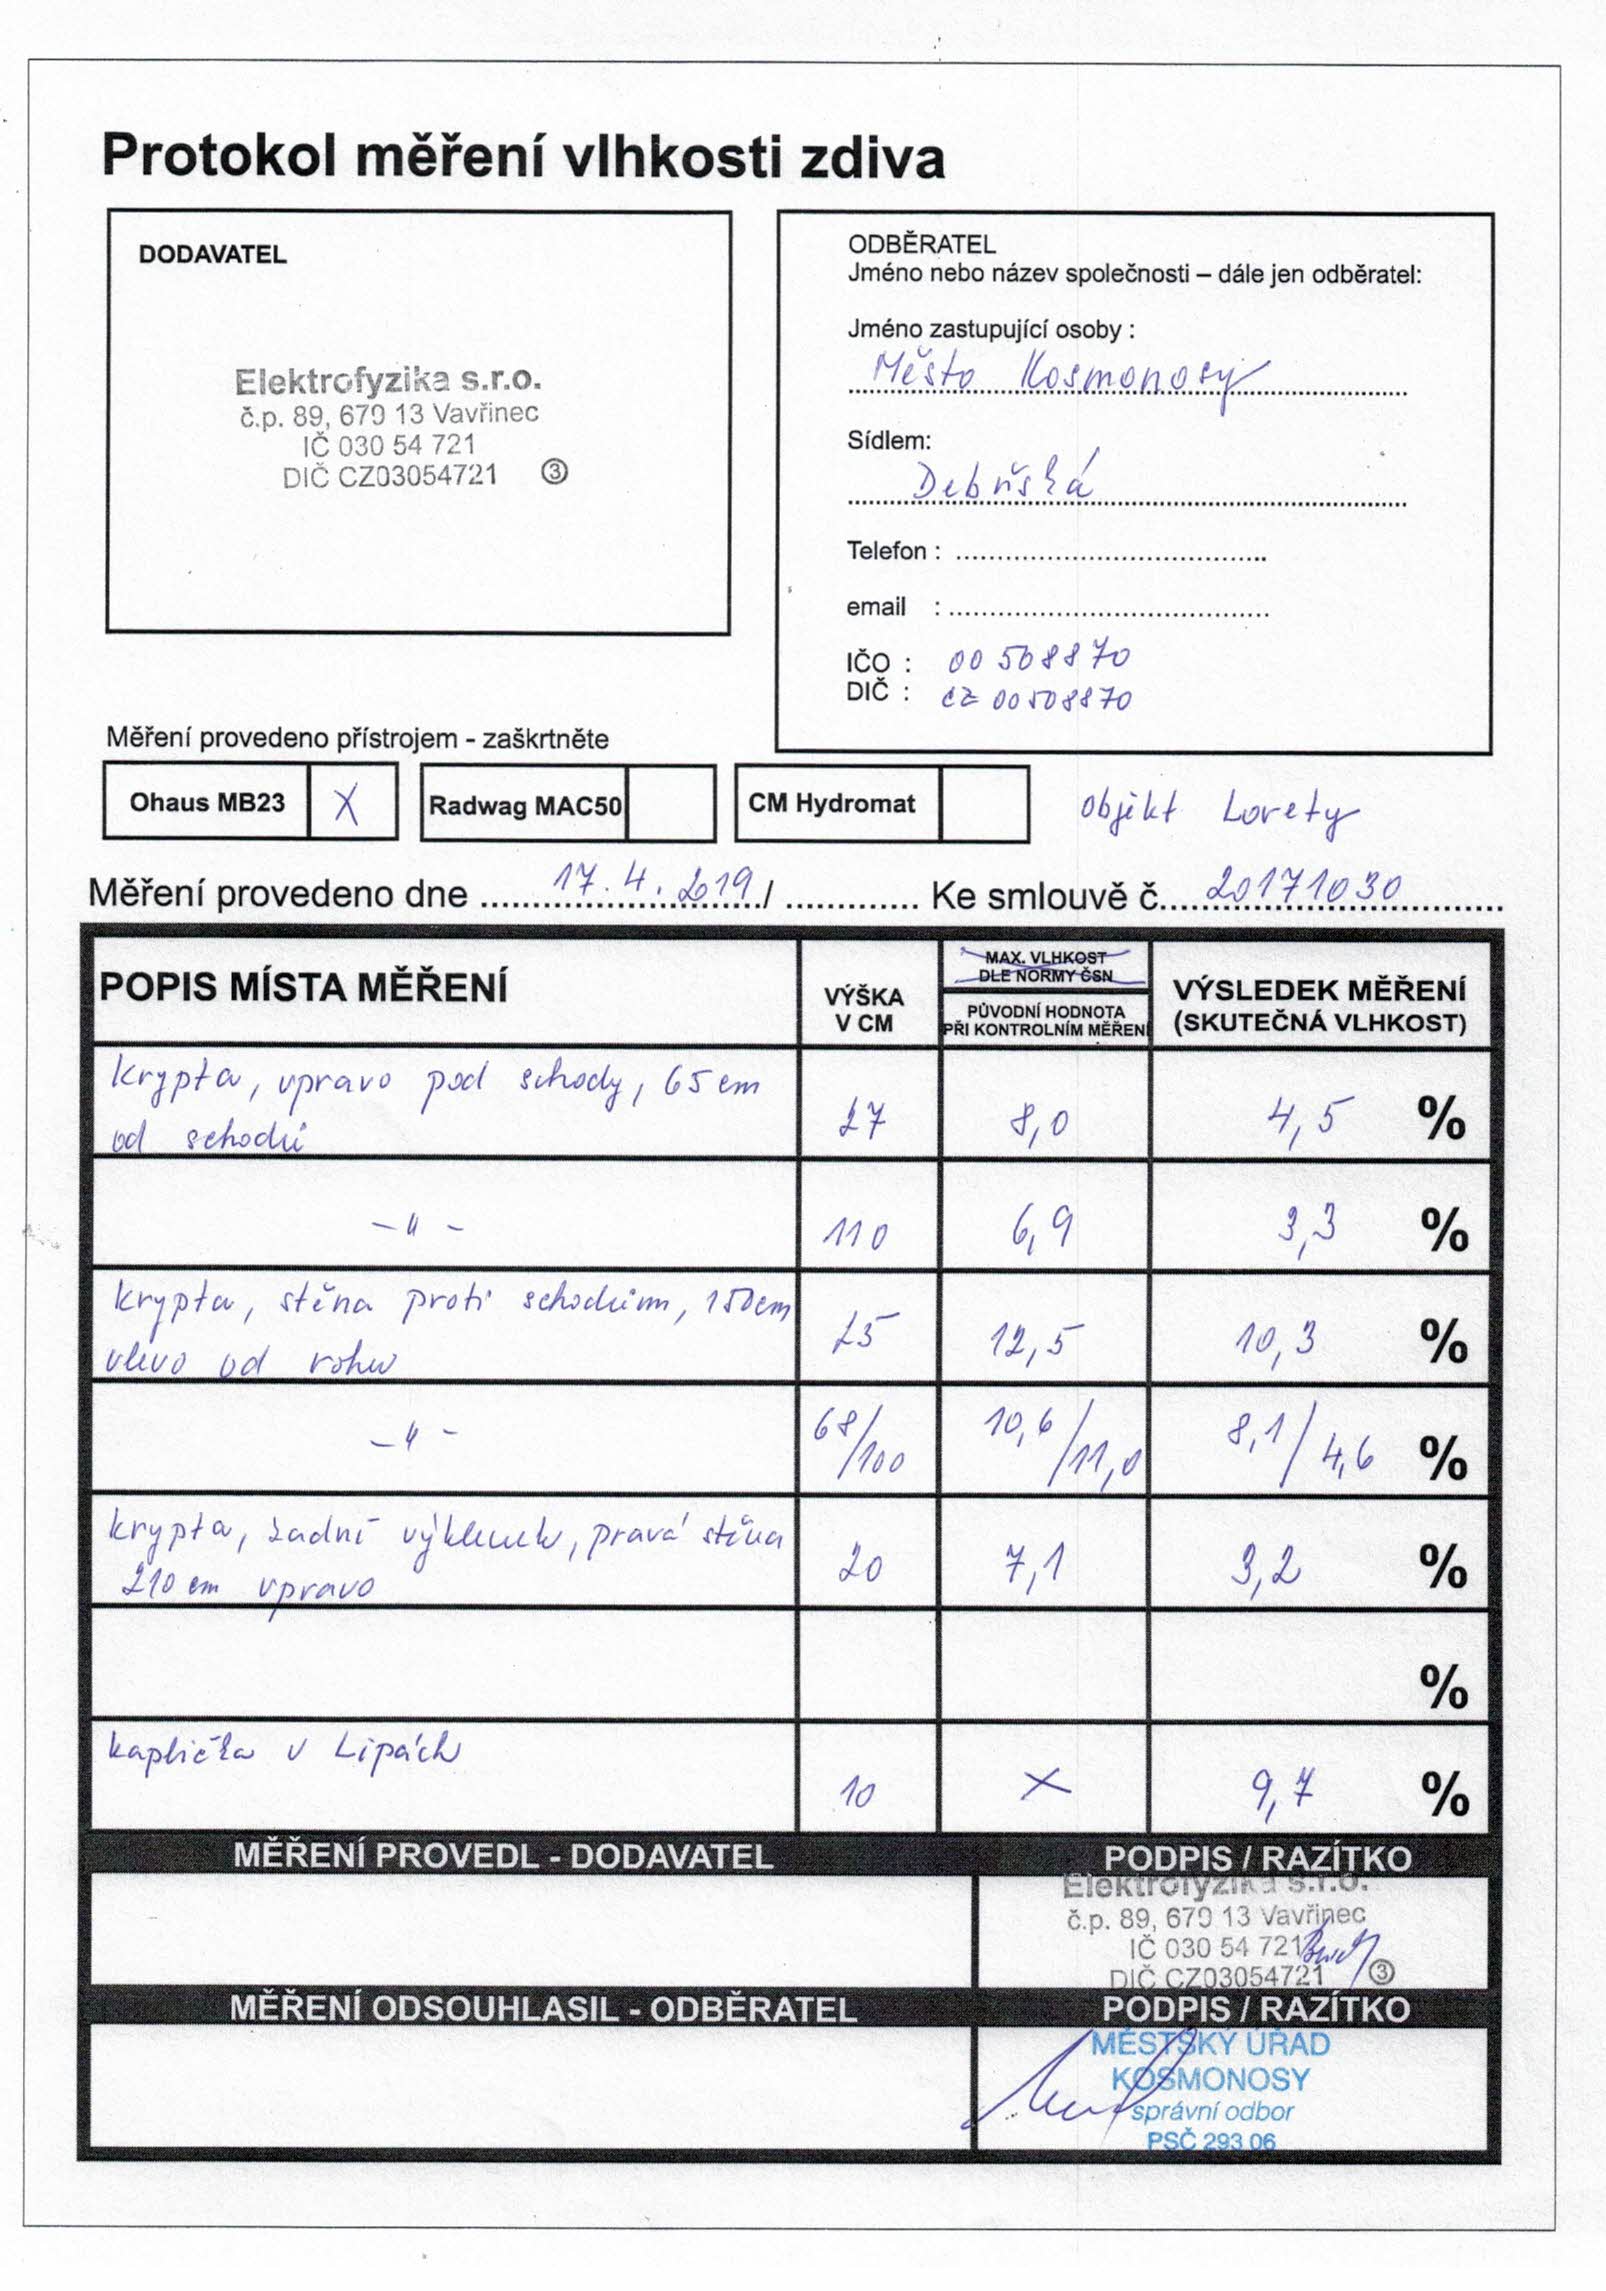 Protokol měření vlhkosti zdiva
DODAVATEL
Elektrofyzika s.r.o.
č.p. 89, 679 13 Vavřinec
IČ 030 54 721
DIČ CZ03054721 ③
ODBĚRATEL
Jméno nebo název společnosti – dále jen odběratel:
Jméno zastupující osoby :
Město Kosmonosy
Sídlem:
Debřská
Telefon :
email :
IČO : 00 508870
DIČ : CZ 00508870
Měření provedeno přístrojem - zaškrtněte
Ohaus MB23 X Radwag MAC50 CM Hydromat
Objekt Lorety
Měření provedeno dne 17.4.2019 / Ke smlouvě č. 20171030
POPIS MÍSTA MĚŘENÍ
VÝŠKA
V CM
MAX. VLHKOST
DLE NORMY ČSN
PŮVODNÍ HODNOTA
PŘI KONTROLNÍM MĚŘENÍ
VÝSLEDEK MĚŘENÍ
(SKUTEČNÁ VLHKOST)
krypta, vpravo pod schody, 65 cm
od schodů
27 8,0 4,5 %
-"- 110 6,9 3,3 %
krypta, stěna proti schodům, 150cm
vlevo od rohu
25 12,5 10,3 %
-"- 68/100 10,6/11,0 8,1/4,6 %
krypta, zadní výklenek, pravá stěna
210 cm vpravo
20 7,1 3,2 %
%
kaplička v Lipách
10 X 9,7 %
MĚŘENÍ PROVEDL - DODAVATEL PODPIS / RAZÍTKO
Elektrofyzika s.r.o.
č.p. 89, 679 13 Vavřinec
IČ 030 54 721
DIČ CZ03054721 ③
MĚŘENÍ ODSOUHLASIL - ODBĚRATEL PODPIS / RAZÍTKO
MĚSTSKÝ ÚŘAD
KOSMONOSY
správní odbor
PSČ 293 06